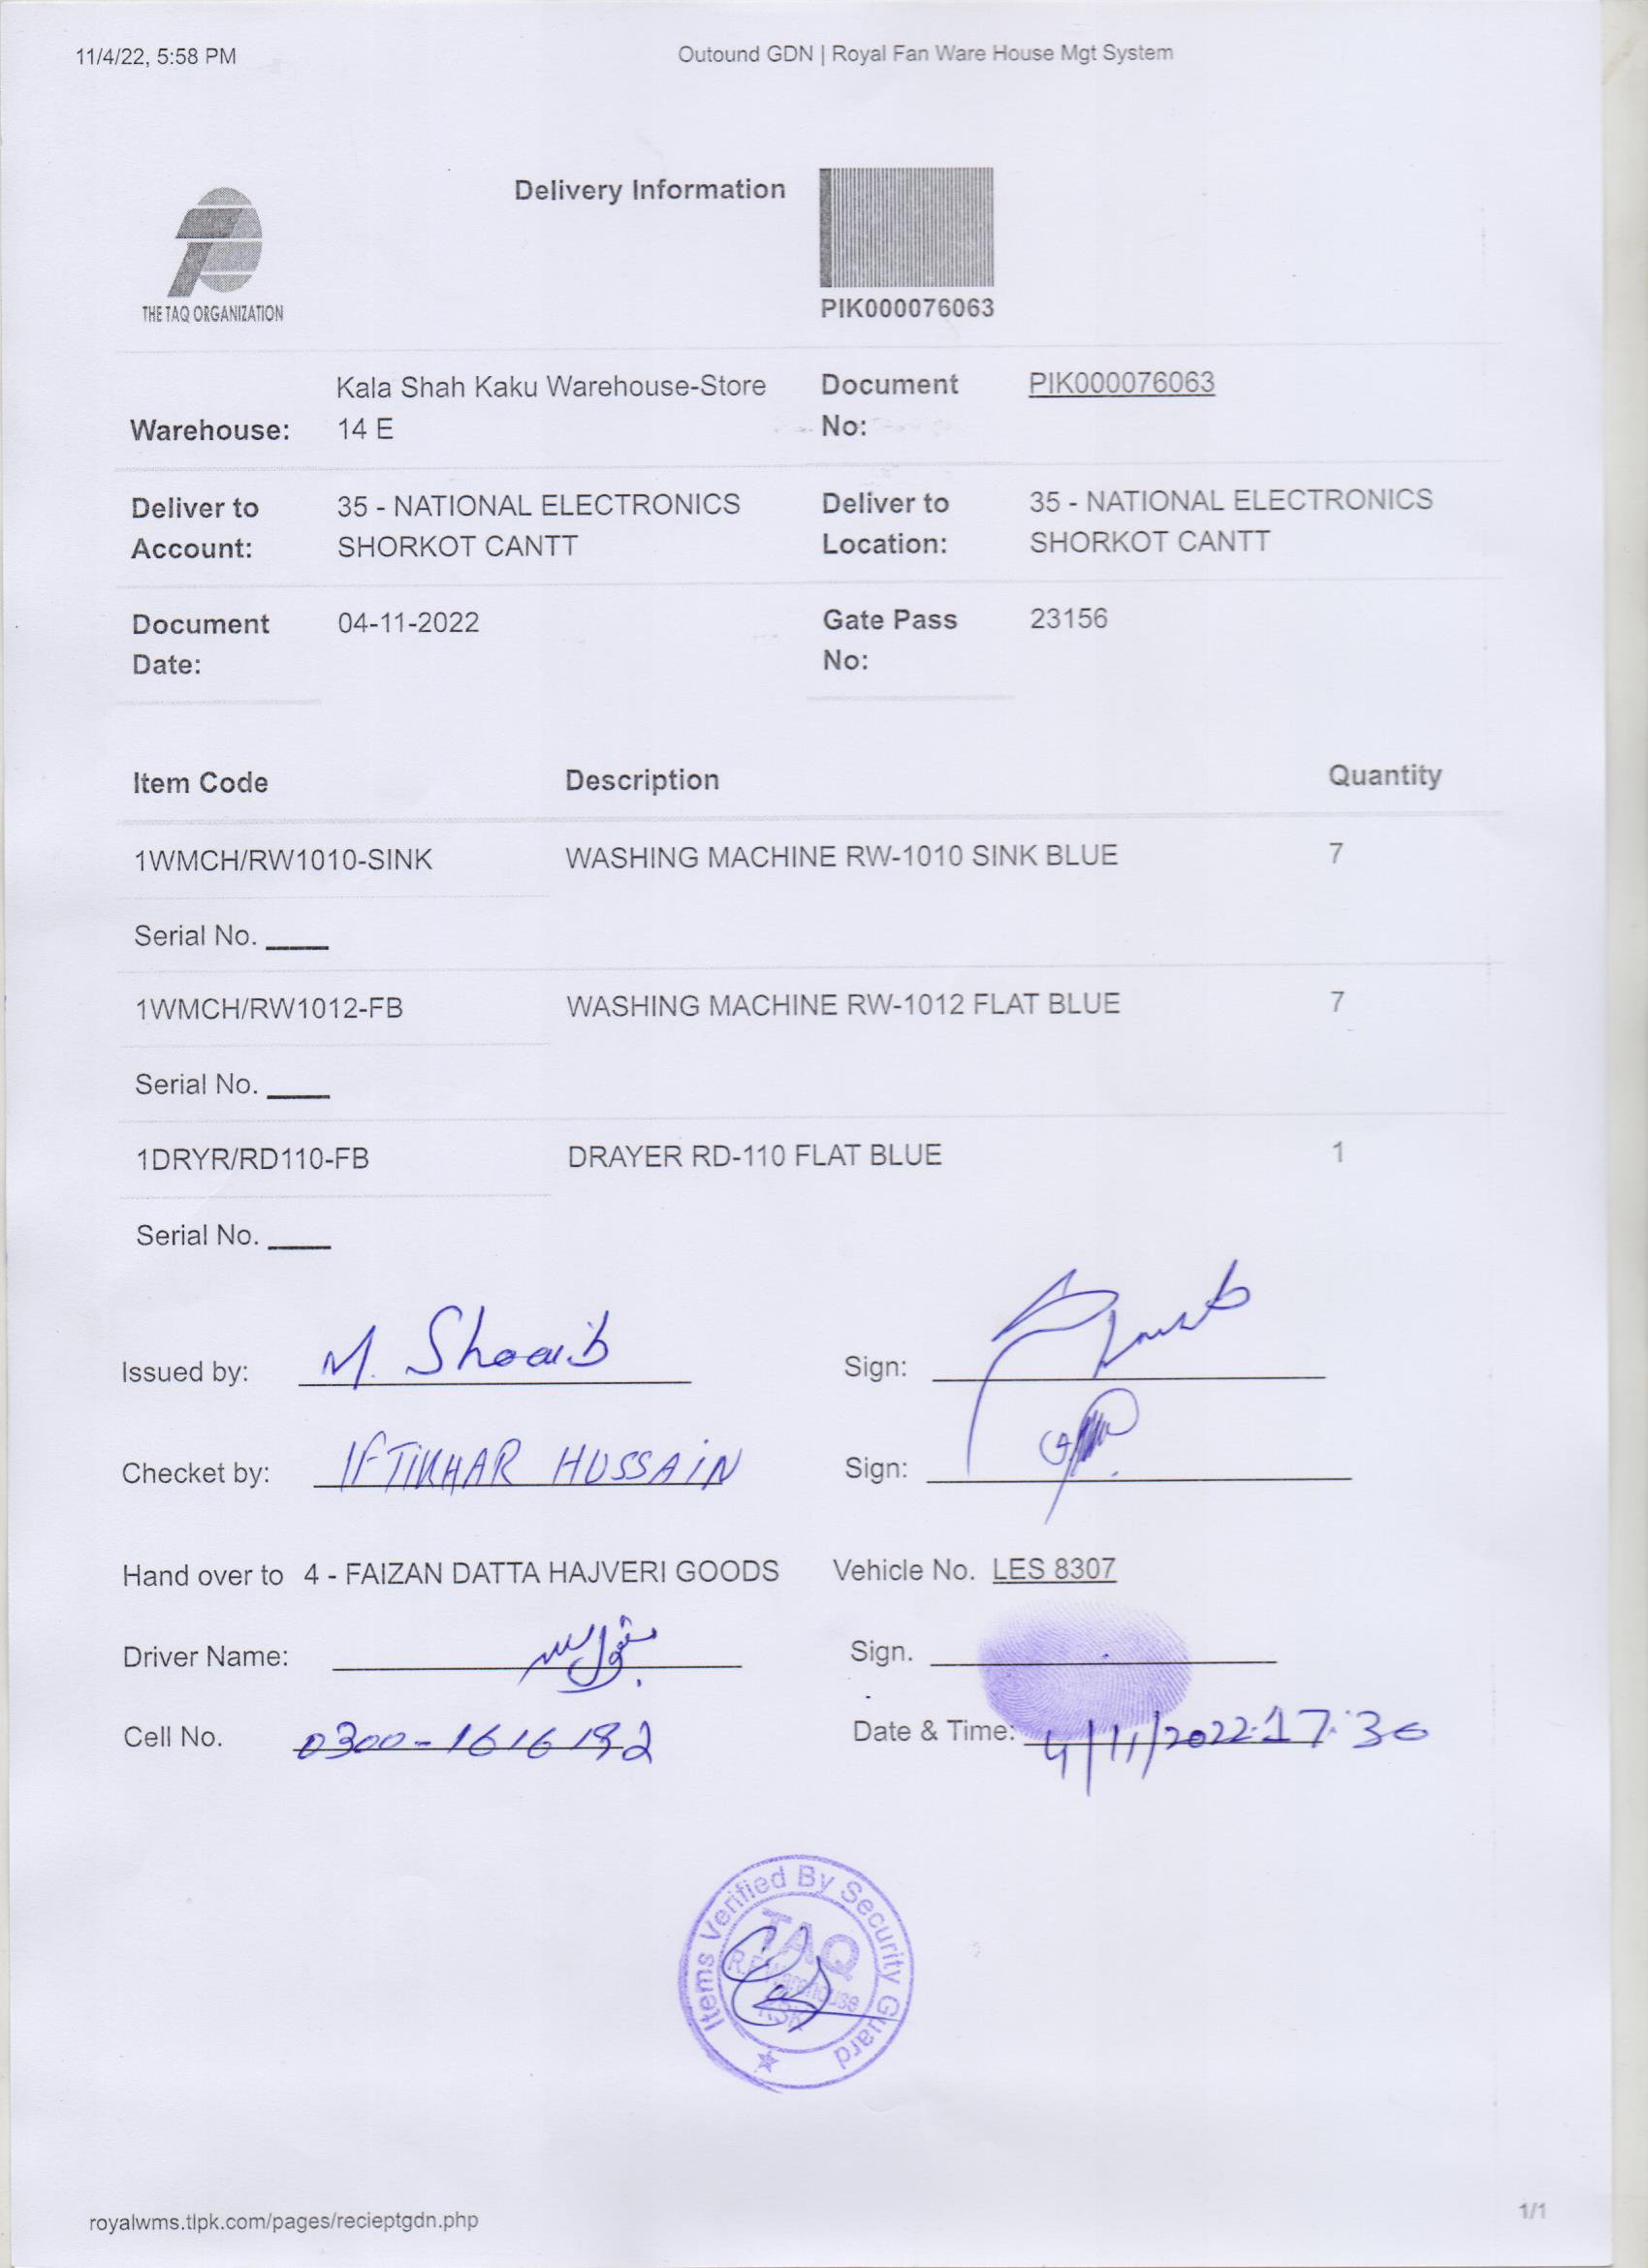 11/4/22, 5:58 PM
Outound GDN | Royal Fan Ware House Mgt System
THE TAQ ORGANIZATION
Delivery Information
PIK000076063
Warehouse: Kala Shah Kaku Warehouse-Store 14 E
Document No: PIK000076063
Deliver to Account: 35 - NATIONAL ELECTRONICS SHORKOT CANTT
Deliver to Location: 35 - NATIONAL ELECTRONICS SHORKOT CANTT
Document Date: 04-11-2022
Gate Pass No: 23156
Item Code Description Quantity
1WMCH/RW1010-SINK WASHING MACHINE RW-1010 SINK BLUE 7
Serial No. ____
1WMCH/RW1012-FB WASHING MACHINE RW-1012 FLAT BLUE 7
Serial No. ____
1DRYR/RD110-FB DRAYER RD-110 FLAT BLUE 1
Serial No. ____
Issued by: M. Shoaib Sign:
Checket by: IFTIKHAR HUSSAIN Sign:
Hand over to 4 - FAIZAN DATTA HAJVERI GOODS Vehicle No. LES 8307
Driver Name: Sign.
Cell No. 0300-1616192 Date & Time: 4/11/2022 17:30
Items Verified By Security Guard
TAQ
R.F Warehouse
KSK
royalwms.tlpk.com/pages/recieptgdn.php
1/1